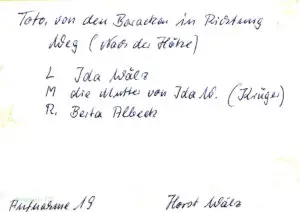 Foto, von den Baracken in Richtung
Weg (Nach der Hütze)
L Ida Wälz
M die Mutter von Ida W. (Krüger)
R. Berta Albeck
Aufnahme 19
Horst Wälz